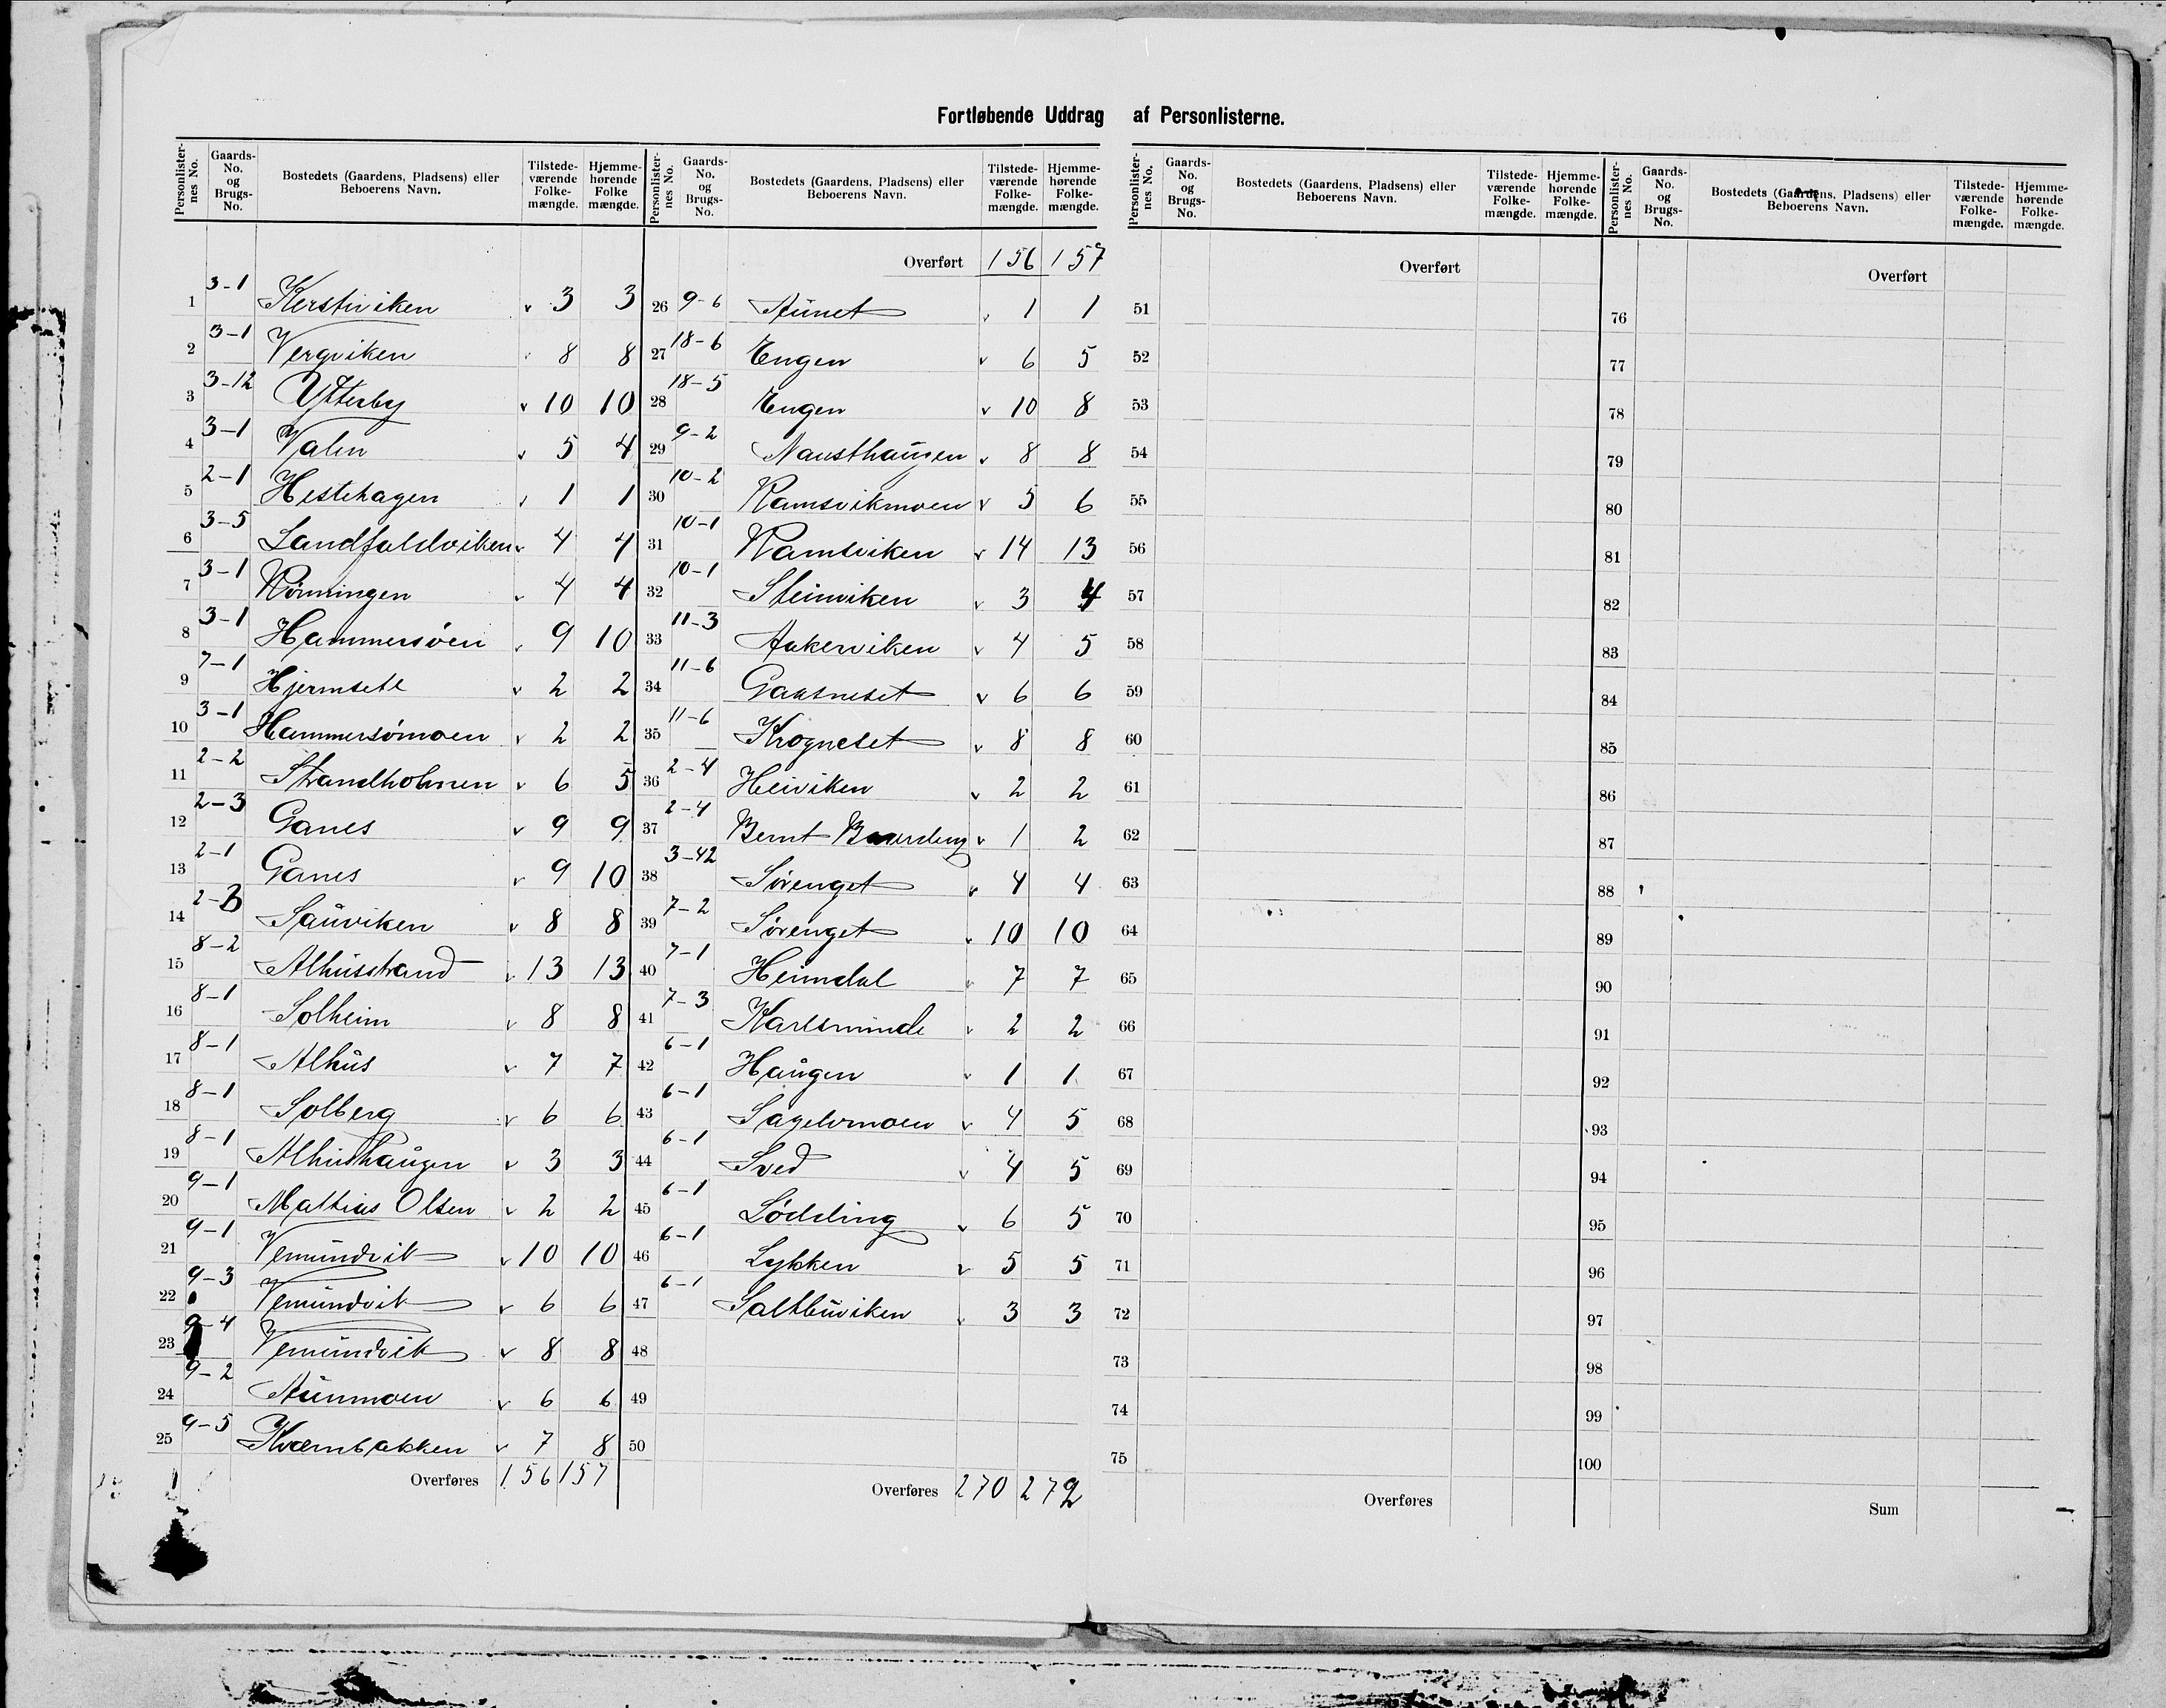 Fortløbende Uddrag af Personlisterne.
Personlisternes No. Gaards-No. og Brugs-No. Bostedets (Gaardens, Pladsens) eller Beboerens Navn. Tilstedeværende Folkemængde. Hjemmehørende Folke mængde.
1 3-1 Kerstiviken v 3 3
2 3-1 Vergviken v 8 8
3 3-12 Ytterby v 10 10
4 3-1 Valen v 5 4
5 2-1 Hestehagen v 1 1
6 3-5 Landfaldviken v 4 4
7 3-1 Rønningen v 4 4
8 3-1 Hammersøen v 9 10
9 7-1 Hjermseth v 2 2
10 3-1 Hammersømoen v 2 2
11 2-2 Strandholmen v 6 5
12 2-3 Ganes v 9 9
13 2-1 Ganes v 9 10
14 2-3 Sauviken v 8 8
15 8-2 Alhusstrand v 13 13
16 8-1 Solheim v 8 8
17 8-1 Alhus v 7 7
18 8-1 Solberg v 6 6
19 8-1 Alhushaugen v 3 3
20 9-1 Mathias Olsen v 2 2
21 9-1 Vemundvik v 10 10
22 9-3 Vemundvik v 6 6
23 9-4 Vemundvik v 8 8
24 9-2 Aunmoen v 6 6
25 9-5 Kværnbakken v 7 8
Overføres 156 157
Personlisternes No. Gaards-No. og Brugs-No. Bostedets (Gaardens, Pladsens) eller Beboerens Navn. Tilstedeværende Folkemængde. Hjemmehørende Folkemængde.
Overført 156 157
26 9-6 Aunet v 1 1
27 18-6 Engen v 6 5
28 18-5 Engen v 10 8
29 9-2 Nausthaugen v 8 8
30 10-2 Ramsvikmoen v 5 6
31 10-1 Ramsviken v 14 13
32 10-1 Steinviken v 3 4
33 11-3 Aakerviken v 4 5
34 11-6 Gaasneset v 6 6
35 11-6 Krogneset v 8 8
36 2-4 Heiviken v 2 2
37 2-4 Bernt v 1 2
38 3-42 Sørenget v 4 4
39 7-2 Sørenget v 10 10
40 7-1 Heimdal v 7 7
41 7-3 Karlsminde v 2 2
42 6-1 Haugen v 1 1
43 6-1 Sagelvmoen v 4 5
44 6-1 Sved v 4 5
45 6-1 Lødding v 6 5
46 6-1 Lykken v 5 5
47 6-1 Saltbuviken v 3 3
48
49
50
Overføres 270 272
Personlisternes No. Gaards-No. og Brugs-No. Bostedets (Gaardens, Pladsens) eller Beboerens Navn. Tilstedeværende Folkemængde. Hjemmehørende Folkemængde.
Overført
51
52
53
54
55
56
57
58
59
60
61
62
63
64
65
66
67
68
69
70
71
72
73
74
75
Overføres
Personlisternes No. Gaards-No. og Brugs-No. Bostedets (Gaardens, Pladsens) eller Beboerens Navn. Tilstedeværende Folkemængde. Hjemmehørende Folkemængde.
Overført
76
77
78
79
80
81
82
83
84
85
86
87
88
89
90
91
92
93
94
95
96
97
98
99
100
Sum